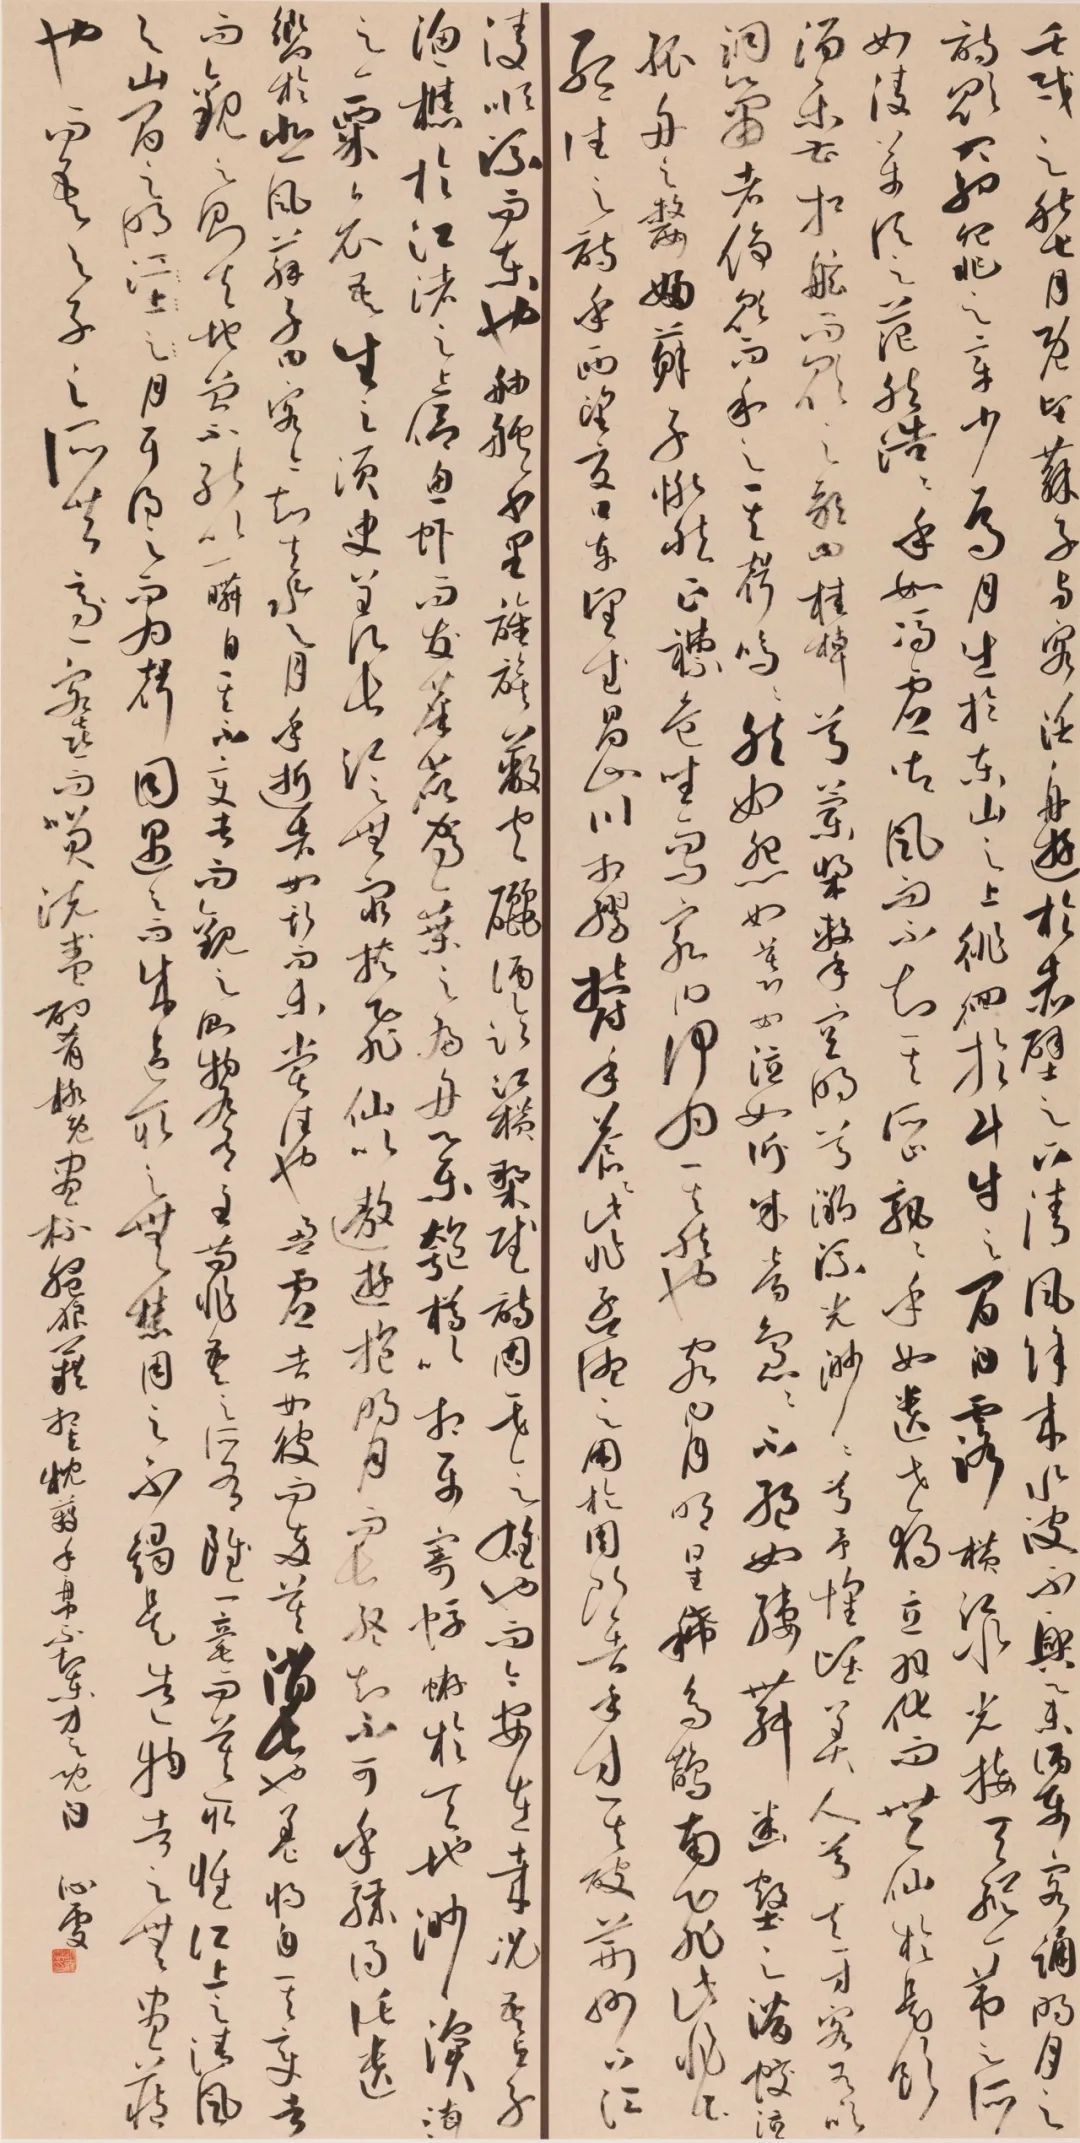 壬戌之秋七月既望蘇子与客泛舟遊於赤壁之下清風徐来水波不興舉酒屬客誦明月之
詩歌窈窕之章少焉月出於東山之上徘徊於斗牛之間白露橫江水光接天縱一葦之所
如凌萬頃之茫然浩浩乎如馮虛御風而不知其所止飄飄乎如遺世獨立羽化而登仙於是飲
酒樂甚扣舷而歌之歌曰桂棹兮蘭槳擊空明兮溯流光渺渺兮予懷望美人兮天一方客有吹
洞簫者倚歌而和之其聲嗚嗚然如怨如慕如泣如訴餘音裊裊不絕如縷舞幽壑之潛蛟泣
孤舟之嫠婦蘇子愀然正襟危坐而問客曰何為其然也客曰月明星稀烏鵲南飛此非曹
孟德之詩乎西望夏口東望武昌山川相繆鬱乎蒼蒼此非孟德之困於周郎者乎方其破荊州下江
陵順流而東也舳艫千里旌旗蔽空釃酒臨江橫槊賦詩固一世之雄也而今安在哉況吾與子
漁樵於江渚之上侶魚蝦而友麋鹿駕一葉之扁舟舉匏樽以相屬寄蜉蝣於天地渺滄海
之一粟哀吾生之須臾羨長江之無窮挾飛仙以遨遊抱明月而長終知不可乎驟得託遺
響於悲風蘇子曰客亦知夫水与月乎逝者如斯而未嘗往也盈虛者如彼而卒莫消長也蓋將自其變者
而觀之則天地曾不能以一瞬自其不變者而觀之則物各有主苟非吾之所有雖一毫而莫取惟江上之清風
与山間之明月耳得之而為聲目遇之而成色取之無禁用之不竭是造物者之無盡藏
也而吾与子之所共適客喜而笑洗盞更酌肴核既盡杯盤狼藉相與枕藉乎舟中不知東方之既白